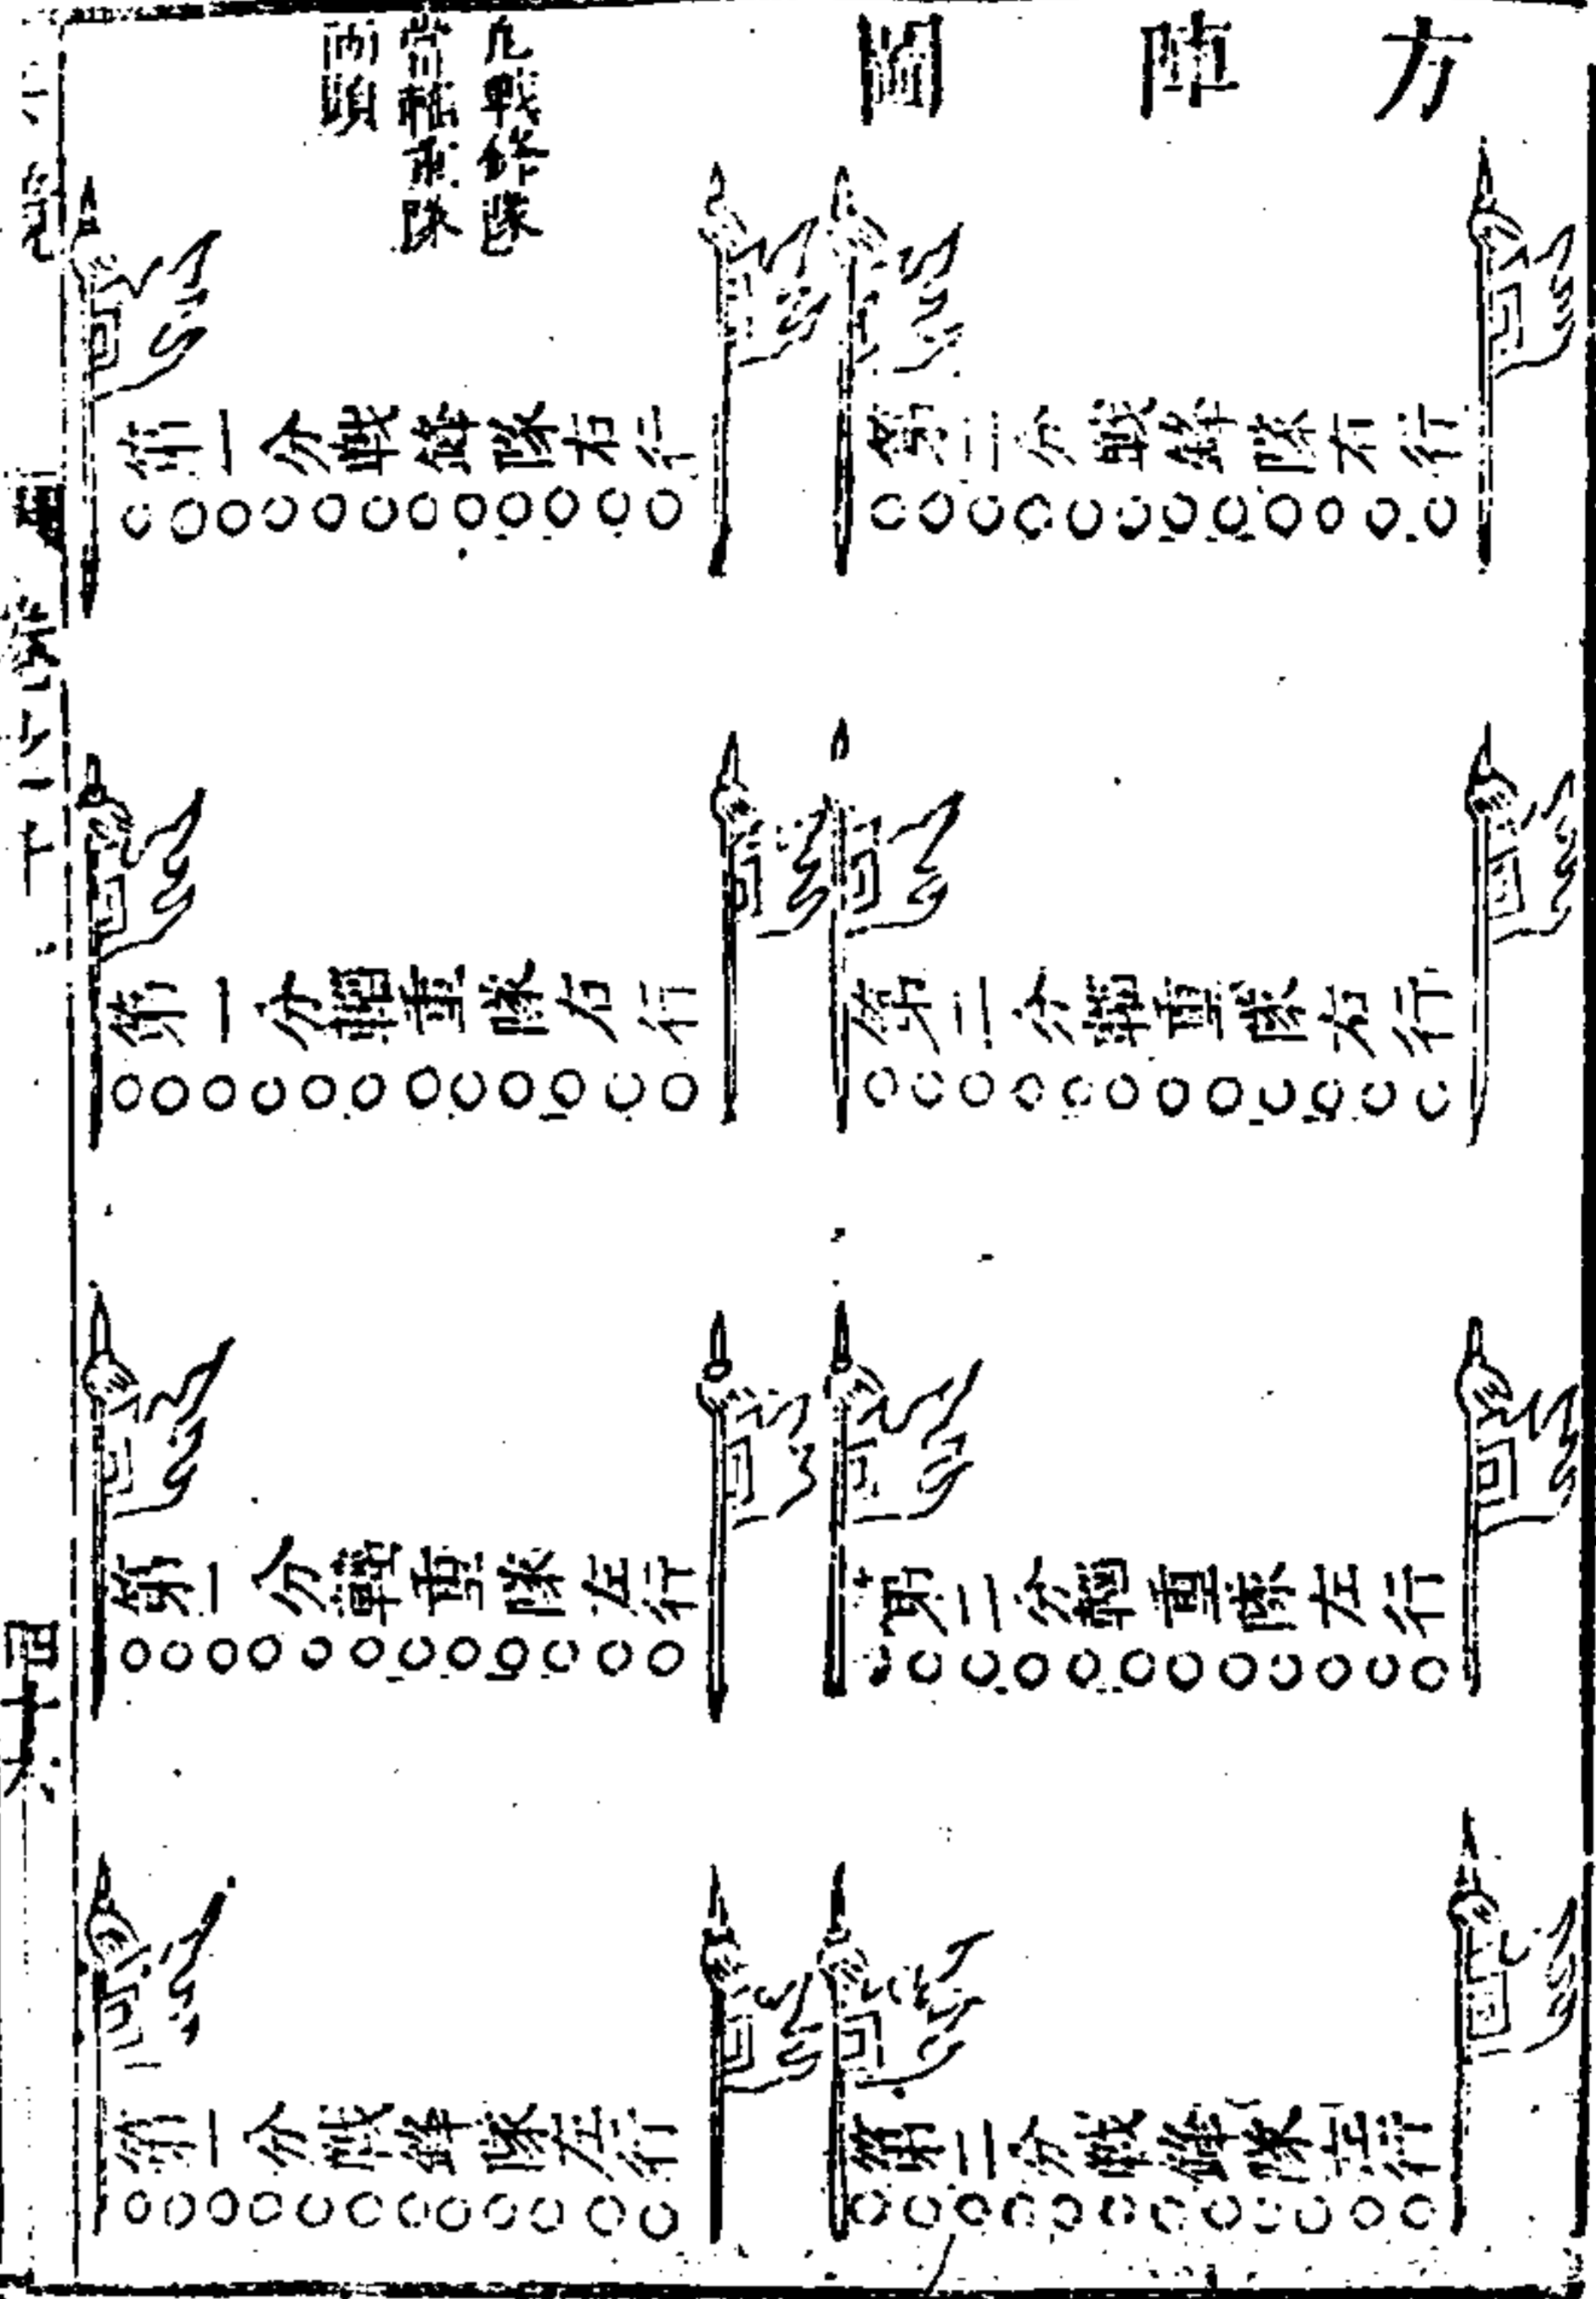 方陣圖
凡戰鋒隊
當輜重隊
兩頭
第二分戰鋒隊右行
第一分戰鋒隊右行
第二分輜重隊右行
第一分輜重隊右行
第二分輜重隊左行
第一分輜重隊左行
第二分戰鋒隊左行
第一分戰鋒隊左行
四十六